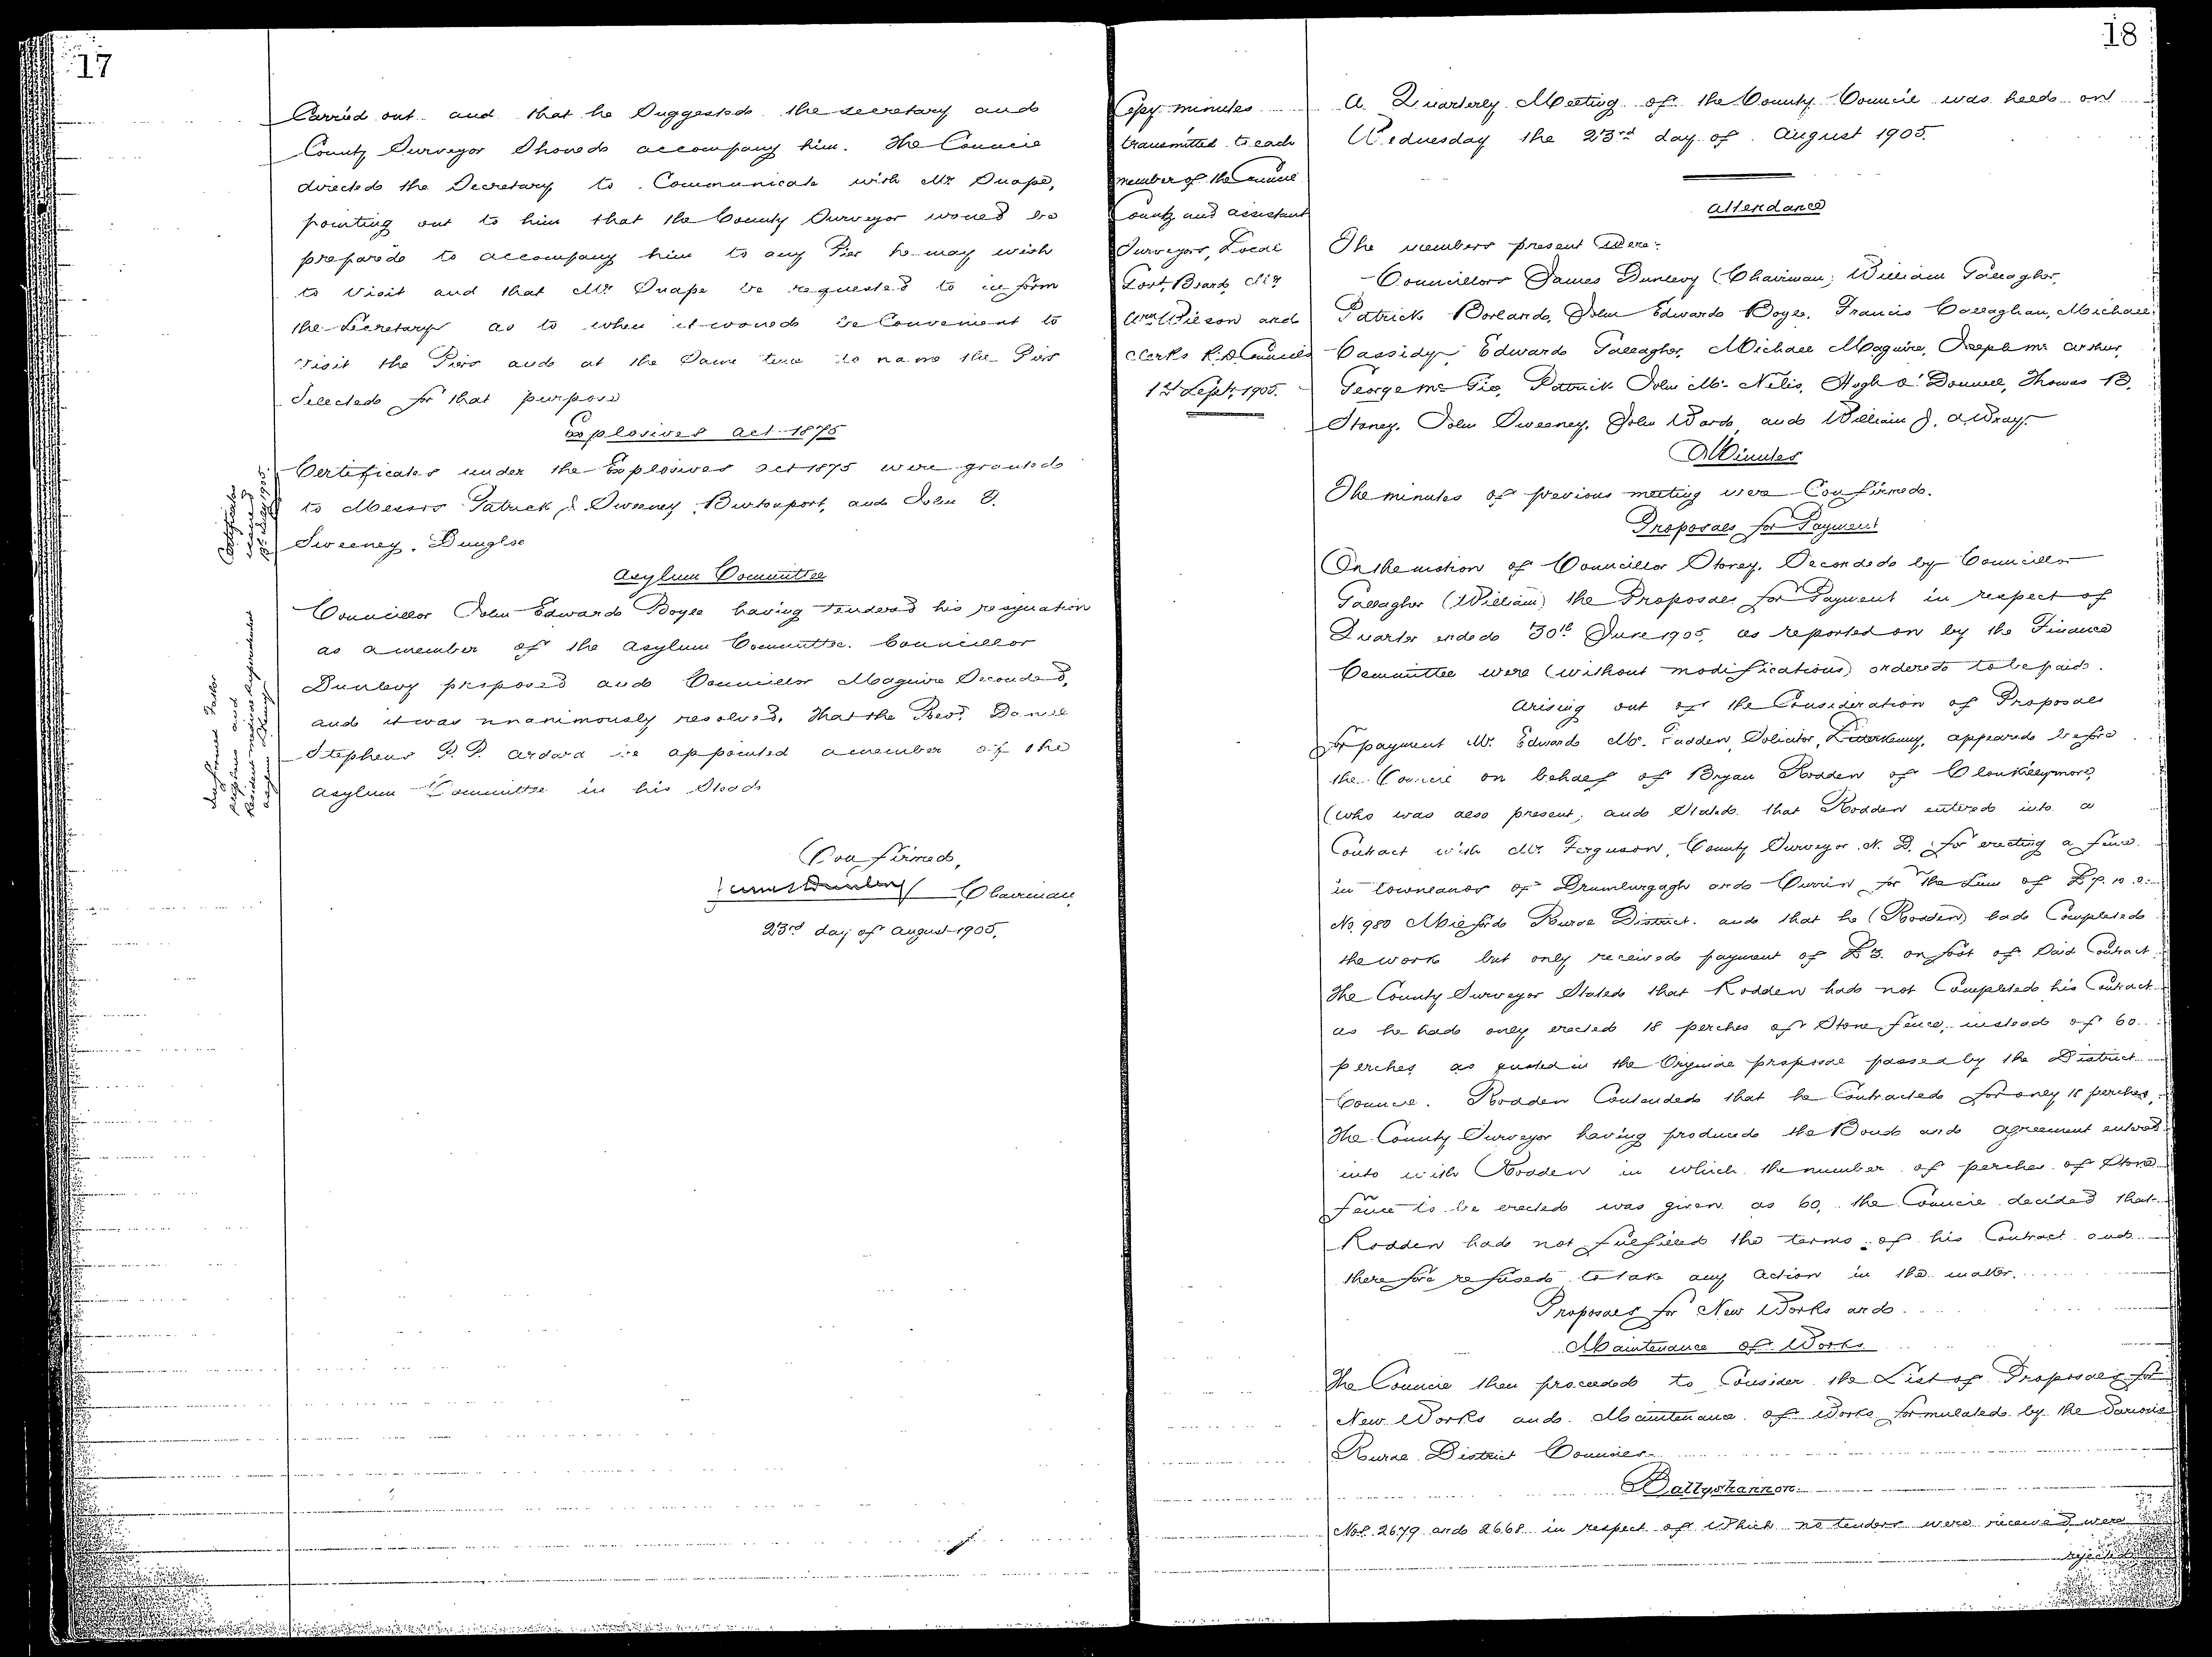 17
Carried out and that he Suggested the secretary and
County Surveyor Should accompany him. The Council
directed the Secretary to Communicate with Mr. Snape,
pointing out to him that the County Surveyor would be
prepared to accompany him to any Pier he may wish
to visit and that Mr. Snape be requested to inform
the Secretary as to when it would be Convenient to
visit the Piers and at the Same time to name the Piers
Selected for that purpose
Explosives Act 1875
Certificates
issued
Certificates under the Explosives Act 1875 were granted
to Messrs Patrick J. Sweeney Burtonport, and John
Sweeney. Dungloe
Asylum Committee
Informed
Asylum and
Resident Medical Superintendent
Asylum
Councillor John Edward Boyle having tendered his resignation
as a member of the Asylum Committee. Councillor
Dunlevy proposed and Councillor Maguire Seconded,
and it was unanimously resolved, That the Revd. Daniel
Stephens P.P. Ardara be appointed a member of the
Asylum Committee in his Stead
Confirmed,
James Dunlevy Chairman
23rd day of August 1905.
18
Copy minutes
transmitted to each
member of the Council
County and assistant
Surveyors, Local
Govt. Board,
Wm Wilson and
Clerks R.D. Councils
1st Sept. 1905.
A Quarterly Meeting of the County Council was held on
Wednesday the 23rd day of August 1905.
Attendance
The members present were:-
Councillors James Dunlevy (Chairman) William Gallagher,
Patrick Borland, John Edward Boyle, Francis Callaghan, Michael
Cassidy, Edward Gallagher, Michael Maguire, Joseph Mc Arthur,
George Mc Gee, Patrick John Mc Nelis, Hugh O'Donnell, Thomas B.
Stoney, John Sweeney, John Ward and William J. A. Wray.
Minutes
The minutes of previous meeting were Confirmed.
Proposals for Payment
On the motion of Councillor Stoney, Seconded by Councillor
Gallagher (William) the Proposals for Payment in respect of
Quarter ended 30th June 1905, as reported on by the Finance
Committee were (without modifications) ordered to be paid.
Arising out of the Consideration of Proposals
for payment Mr. Edward Mc. Fadden, Solicitor, Letterkenny, appeared before
the Council on behalf of Bryan Rodden of Clonkillymore,
(who was also present) and Stated that Rodden entered into a
Contract with Mr. Ferguson, County Surveyor N. D. for erecting a fence
in townlands of Drumlurgagh and Currin for the Sum of
No. 980 Milford Rural District. and that he (Rodden) had Completed
the work but only received payment of £3. on foot of Said Contract.
The County Surveyor Stated that Rodden had not Completed his Contract
as he had only erected 18 perches of Stone fence, instead of 60
perches as quoted in the Original proposal passed by the District
Council. Rodden Contended that he Contracted for only 18 perches.
The County Surveyor having produced the Bond and agreement entered
into with Rodden in which the number of perches of Stone
fence to be erected was given as 60, the Council decided that
Rodden had not fulfilled the terms of his Contract and
therefore refused to take any action in the matter.
Proposals for New Works and
Maintenance of Works
The Council then proceeded to Consider the List of Proposals for
New Works and Maintenance of Works formulated by the various
Rural District Councils.
Ballyshannon.
Nos. 2679 and 2668 in respect of which no tenders were received, were
rejected